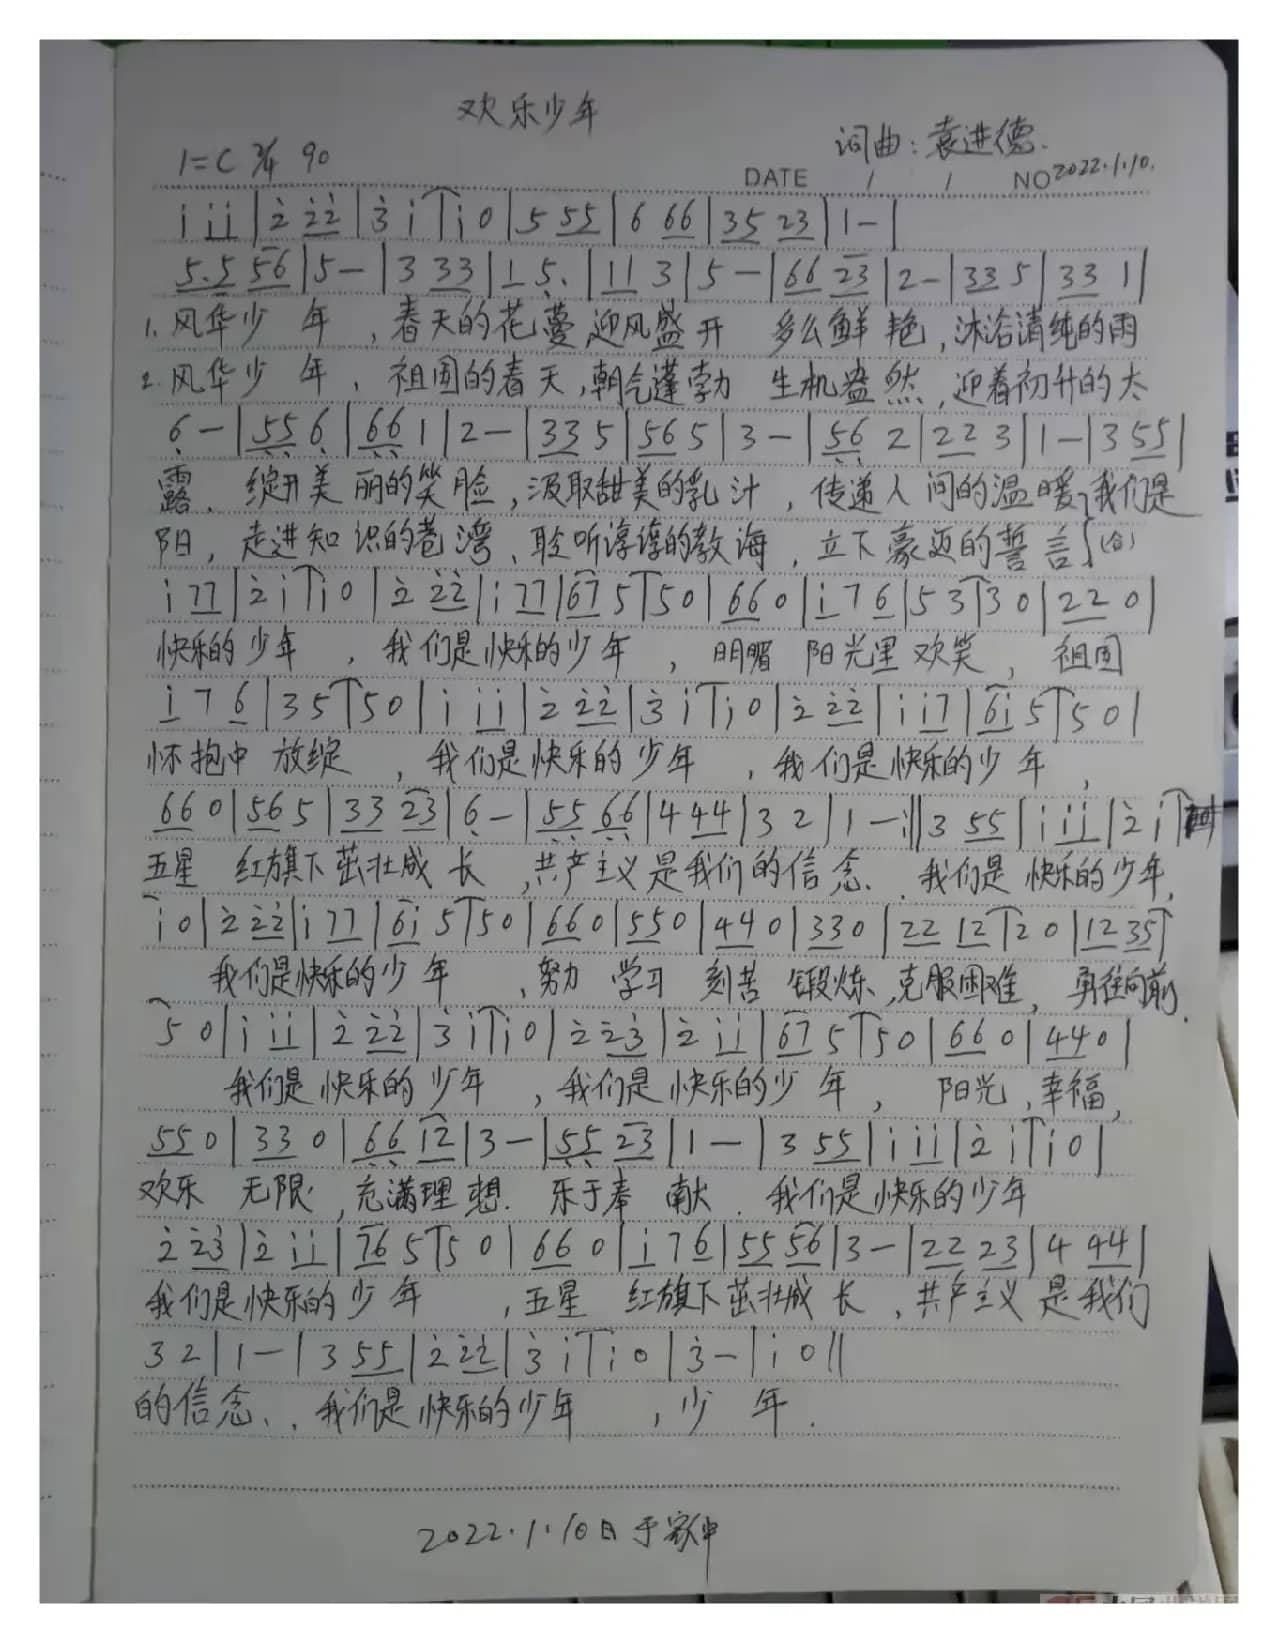 欢乐少年
1=C 2/4 90 词曲：袁进德
DATE / / NO 2022.1.10.
i i i | 2̇ 2̇ 2̇ | 3̇ i | i 0 | 5 5 5 | 6 6 6 | 3 5 2 3 | 1 - |
5. 5 5 6 | 5 - | 3 3 3 | 1 5 | 1 1 3 | 5 - | 6 6 2 3 | 2 - | 3 3 5 | 3 3 1 |
1. 风华少 年 ，春天的花蔓迎风盛开 多么鲜 艳，沐浴清纯的雨
2. 风华少 年 ，祖国的春天，朝气蓬勃 生机盎然，迎着初升的太
6 - | 5 5 6 | 6 6 1 | 2 - | 3 3 5 | 5 6 5 | 3 - | 5 6 2 | 2 2 3 | 1 - | 3 5 5 |
露，绽开美 丽的笑脸，汲取甜美的乳汁，传递人间的温暖，我们是
阳，走进知 识的巷湾，聆听谆谆的教诲，立下豪迈的誓言 (合)
i 7 7 | 2̇ i | i 0 | 2̇ 2̇ 2̇ | i 7 7 | 6 7 5 | 5 0 | 6 6 0 | i 7 6 | 5 3 | 3 0 | 2 2 0 |
快乐的少年 ，我们是快乐的少年 ，明媚 阳光里欢笑 ，祖国
i 7 6 | 3 5 | 5 0 | i i i | 2̇ 2̇ 2̇ | 3̇ i | i 0 | 2̇ 2̇ 2̇ | i i 7 | 6 i 5 | 5 0 |
怀抱中 放绽 ，我们是快乐的少年 ，我们是快乐的少年 ，
6 6 0 | 5 6 5 | 3 3 2 3 | 6 - | 5 5 6 6 | 4 4 4 | 3 2 | 1 - :|| 3 5 5 | i i i | 2̇ i |
五星 红旗下茁壮成长 ，共产主义是我们的信念． 我们是快乐的少年，
i 0 | 2̇ 2̇ 2̇ | i 7 7 | 6 i 5 | 5 0 | 6 6 0 | 5 5 0 | 4 4 0 | 3 3 0 | 2 2 1 2 | 2 0 | 1 2 3 5 |
我们是快乐的少年 ，努力 学习 刻苦 锻炼，克服困难，勇往向前．
5 0 | i i i | 2̇ 2̇ 2̇ | 3̇ i | i 0 | 2̇ 2̇ 3̇ | 2̇ i i | 6 7 5 | 5 0 | 6 6 0 | 4 4 0 |
我们是快乐的少年 ，我们是快乐的少年 ， 阳光，幸福，
5 5 0 | 3 3 0 | 6 6 1 2 | 3 - | 5 5 2 3 | 1 - | 3 5 5 | i i i | 2̇ i | i 0 |
欢乐 无限，充满理想． 乐于奉献． 我们是快乐的少年
2̇ 2̇ 3̇ | 2̇ i i | 7 6 5 | 5 0 | 6 6 0 | i 7 6 | 5 5 5 6 | 3 - | 2 2 2 3 | 4 4 4 |
我们是快乐的少年 ，五星 红旗下茁壮成长，共产主义是我们
3 2 | 1 - | 3 5 5 | 2̇ 2̇ 2̇ | 3̇ i | i 0 | 3̇ - | i 0 ||
的信念．，我们是快乐的少年 ，少 年．
2022.1.10日于家中